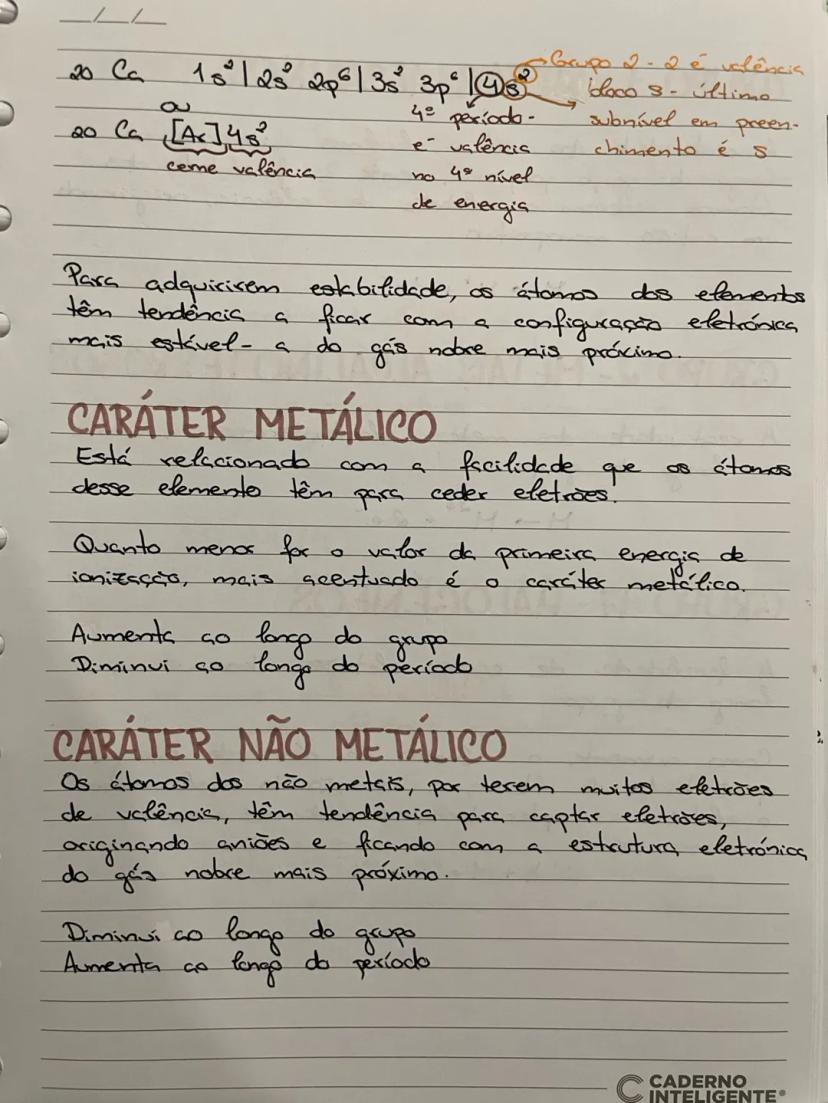 20 Ca 1s² | 2s² 2p⁶ | 3s² 3p⁶ | 4s²
Grupo 2 - 2 é valência
bloco s - último
subnível em preen-
chimento é s
4º período -
e⁻ valência
no 4º nível
de energia
ou
20 Ca [Ar] 4s²
cerne valência
Para adquirirem estabilidade, os átomos dos elementos
têm tendência a ficar com a configuração eletrónica
mais estável - a do gás nobre mais próximo.
CARÁTER METÁLICO
Está relacionado com a facilidade que os átomos
desse elemento têm para ceder eletrões.
Quanto menor for o valor da primeira energia de
ionização, mais acentuado é o caráter metálico.
Aumenta ao longo do grupo
Diminui ao longo do período
CARÁTER NÃO METÁLICO
Os átomos dos não metais, por terem muitos eletrões
de valência, têm tendência para captar eletrões,
originando aniões e ficando com a estrutura eletrónica
do gás nobre mais próximo.
Diminui ao longo do grupo
Aumenta ao longo do período
CADERNO
INTELIGENTE®